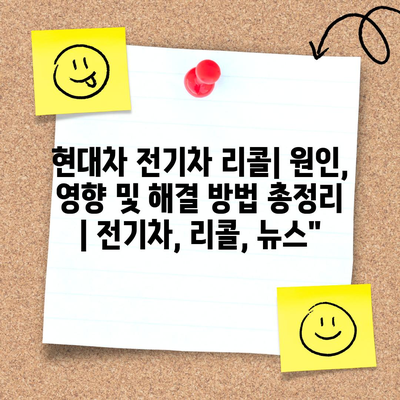 현대차 전기차 리콜| 원인,
영향 및 해결 방법 총정리
| 전기차, 리콜, 뉴스"